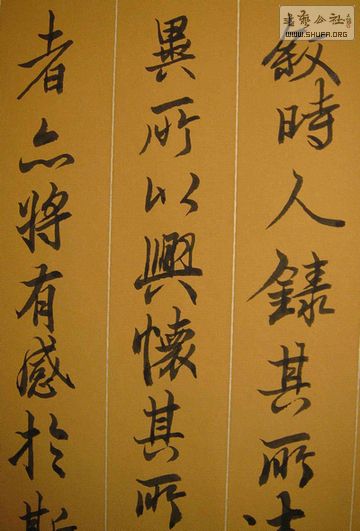 敘時人錄其所述
異所以興懷其所
者亦將有感於斯
書藝公社
WWW.SHUFA.ORG